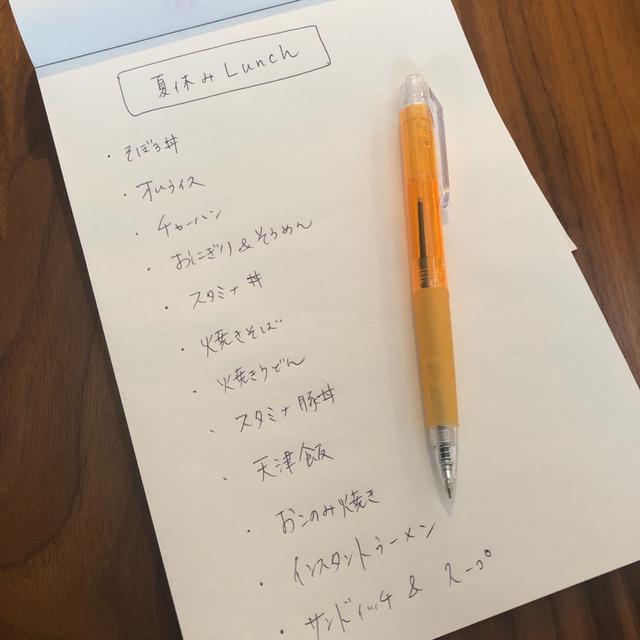 夏休みLunch
・そぼろ丼
・オムライス
・チャーハン
・おにぎり&そうめん
・スタミナ丼
・焼きそば
・焼きうどん
・スタミナ豚丼
・天津飯
・おこのみ焼き
・インスタントラーメン
・サンドイッチ & スープ